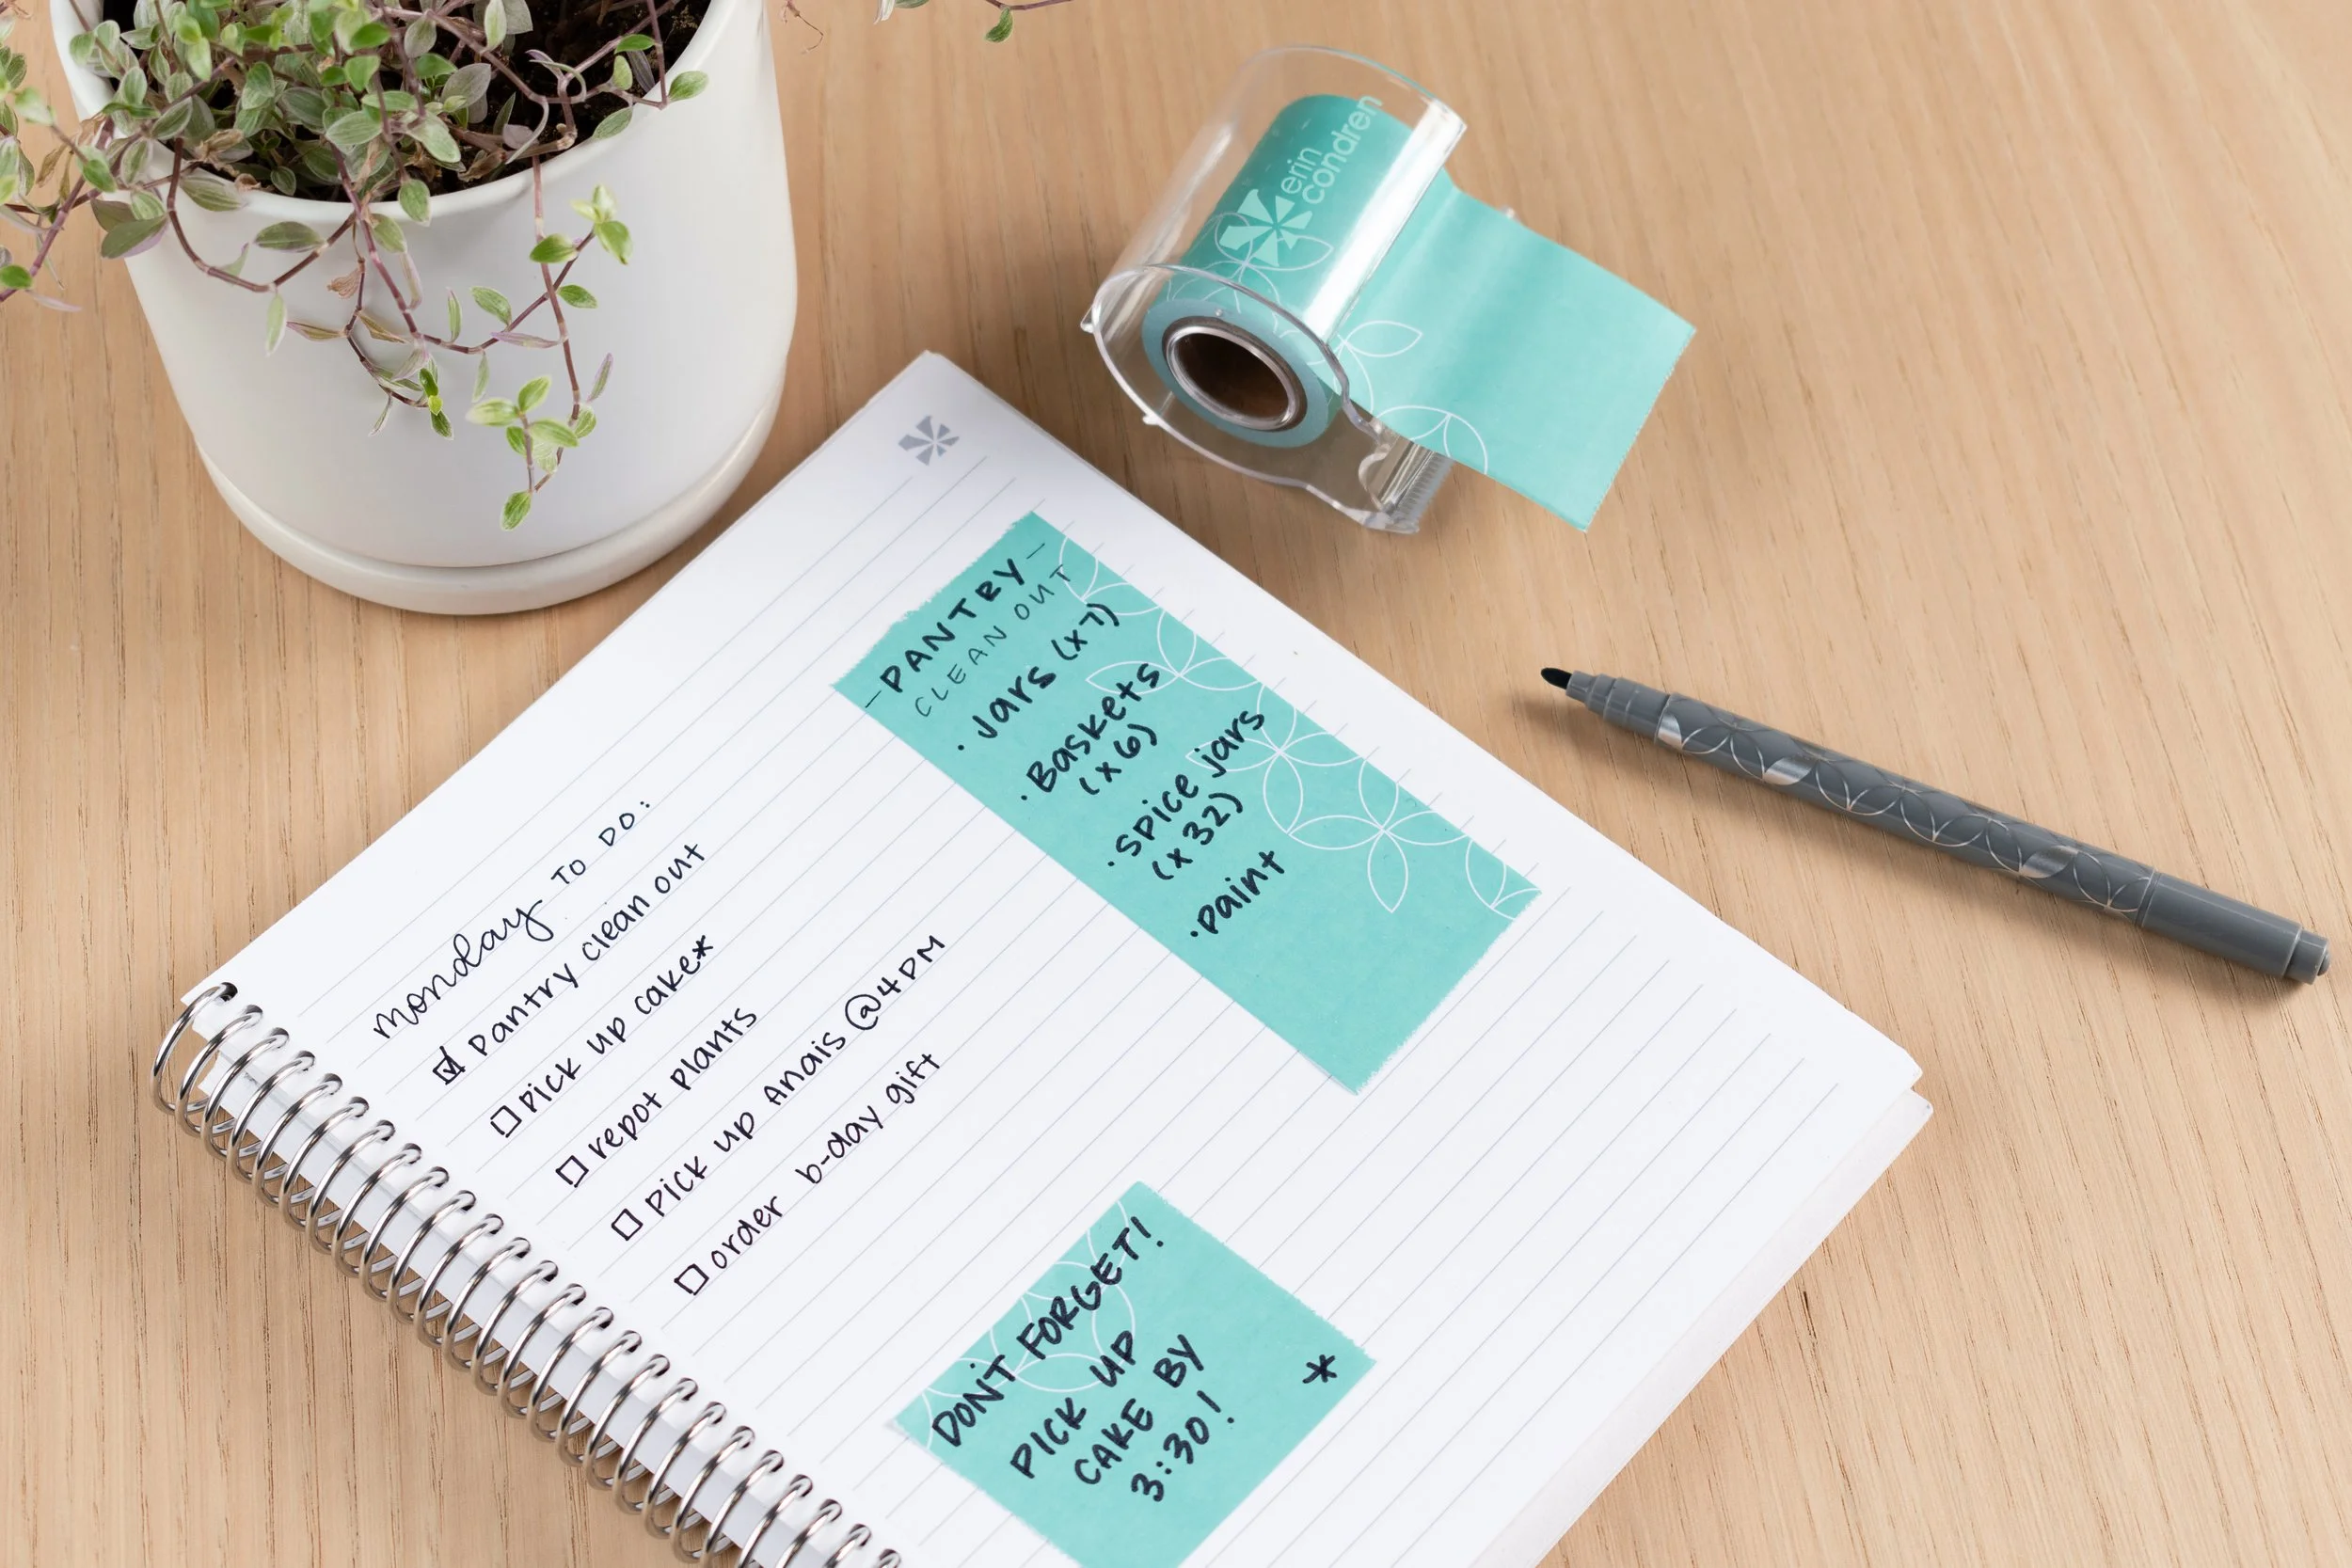 erin
condren
-PANTRY-
CLEAN OUT
• Jars (x7)
• Baskets
(x6)
• spice jars
(x32)
• paint
monday TO DO:
☑ pantry clean out
☐ pick up cake*
☐ repot plants
☐ pick up Anais @4PM
☐ order b-day gift
DON'T FORGET!
PICK UP
CAKE BY
3:30!
*